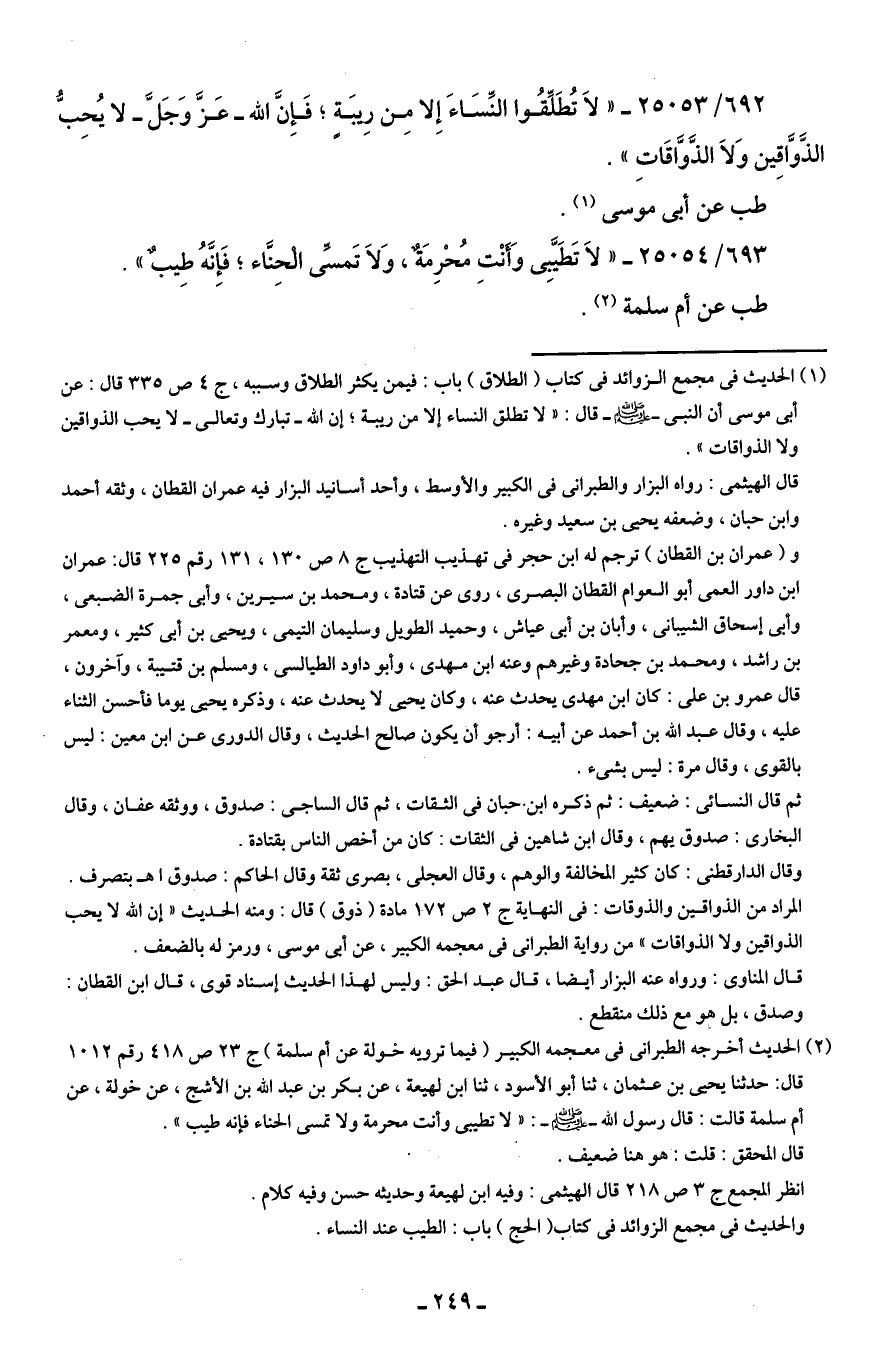 ٦٩٢/ ٢٥٠٥٣ ـ « لاَ تُطَلِّقُوا النِّسَاءَ إِلا مِن رِيبَةٍ ؛ فَإِنَّ الله ـ عَزَّ وَجَلَّ ـ لا يُحِبُّ
الذَّوَّاقِين وَلاَ الذَّوَّاقَاتِ » .
طب عن أبى موسى (١) .
٦٩٣/ ٢٥٠٥٤ ـ « لاَ تَطَيَّبِى وَأَنْتِ مُحْرِمَةٌ ، وَلاَ تَمسِّى الْحِنَّاء ؛ فَإِنَّهُ طِيبٌ » .
طب عن أم سلمة (٢) .
(١) الحديث فى مجمع الزوائد فى كتاب ( الطلاق ) باب : فيمن يكثر الطلاق وسببه ، ج ٤ ص ٣٣٥ قال : عن
أبى موسى أن النبى ـ ﷺ ـ قال : « لا تطلق النساء إلا من ريبة ؛ إن الله ـ تبارك وتعالى ـ لا يحب الذواقين
ولا الذواقات » .
قال الهيثمى : رواه البزار والطبرانى فى الكبير والأوسط ، وأحد أسانيد البزار فيه عمران القطان ، وثقه أحمد
وابن حبان ، وضعفه يحيى بن سعيد وغيره .
و ( عمران بن القطان ) ترجم له ابن حجر فى تهذيب التهذيب ج ٨ ص ١٣٠ ، ١٣١ رقم ٢٢٥ قال: عمران
ابن داور العمى أبو العوام القطان البصرى ، روى عن قتادة ، ومحمد بن سيرين ، وأبى جمرة الضبعى ،
وأبى إسحاق الشيبانى ، وأبان بن أبى عياش ، وحميد الطويل وسليمان التيمى ، ويحيى بن أبى كثير ، ومعمر
بن راشد ، ومحمد بن جحادة وغيرهم وعنه ابن مهدى ، وأبو داود الطيالسى ، ومسلم بن قتيبة ، وآخرون ،
قال عمرو بن على : كان ابن مهدى يحدث عنه ، وكان يحيى لا يحدث عنه ، وذكره يحيى يوما فأحسن الثناء
عليه ، وقال عبد الله بن أحمد عن أبيه : أرجو أن يكون صالح الحديث ، وقال الدورى عن ابن معين : ليس
بالقوى ، وقال مرة : ليس بشىء .
ثم قال النسائى : ضعيف : ثم ذكره ابن حبان فى الثقات ، ثم قال الساجى : صدوق ، ووثقه عفان ، وقال
البخارى : صدوق يهم ، وقال ابن شاهين فى الثقات : كان من أخص الناس بقتادة .
وقال الدارقطنى : كان كثير المخالفة والوهم ، وقال العجلى ، بصرى ثقة وقال الحاكم : صدوق ا هـ بتصرف .
المراد من الذواقين والذوقات : فى النهاية ج ٢ ص ١٧٢ مادة ( ذوق ) قال : ومنه الحديث « إن الله لا يحب
الذواقين ولا الذواقات » من رواية الطبرانى فى معجمه الكبير ، عن أبى موسى ، ورمز له بالضعف .
قال المناوى : ورواه عنه البزار أيضا ، قال عبد الحق : وليس لهذا الحديث إسناد قوى ، قال ابن القطان :
وصدق ، بل هو مع ذلك منقطع .
(٢) الحديث أخرجه الطبرانى فى معجمه الكبير ( فيما ترويه خولة عن أم سلمة ) ج ٢٣ ص ٤١٨ رقم ١٠١٢
قال: حدثنا يحيى بن عثمان ، ثنا أبو الأسود ، ثنا ابن لهيعة ، عن بكر بن عبد الله بن الأشج ، عن خولة ، عن
أم سلمة قالت : قال رسول الله ـ ﷺ ـ : « لا تطيبى وأنت محرمة ولا تمسى الحناء فإنه طيب » .
قال المحقق : قلت : هو هنا ضعيف .
انظر المجمع ج ٣ ص ٢١٨ قال الهيثمى : وفيه ابن لهيعة وحديثه حسن وفيه كلام .
والحديث فى مجمع الزوائد فى كتاب( الحج ) باب : الطيب عند النساء .
ـ ٢٤٩ ـ